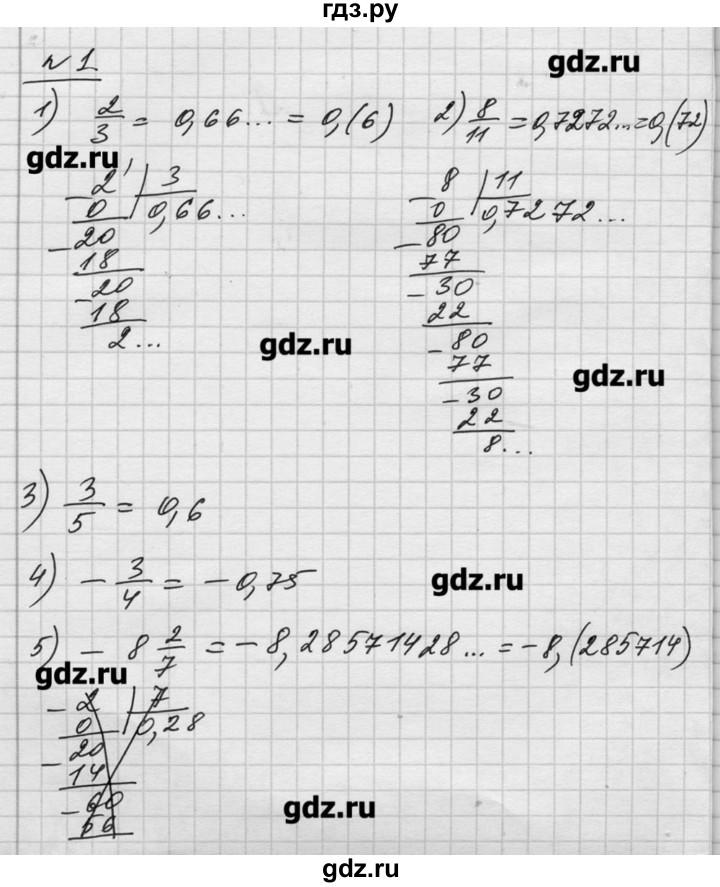 гдз.ру
№ 1
gdz.ru
1) 2/3 = 0,66... = 0,(6)
2) 8/11 = 0,7272... = 0,(72)
gdz.ru
- 2' | 3
0 | 0,66...
- 20
18
- 20
18
2...
- 8 | 11
0 | 0,7272...
- 80
77
- 30
22
- 80
77
- 30
22
8...
gdz.ru
gdz.ru
3) 3/5 = 0,6
4) - 3/4 = - 0,75
gdz.ru
5) - 8 2/7 = - 8,28571428... = - 8,(285714)
gdz.ru
- 2 | 7
0 | 0,28
- 20
14
- 60
56
gdz.ru
gdz.ru